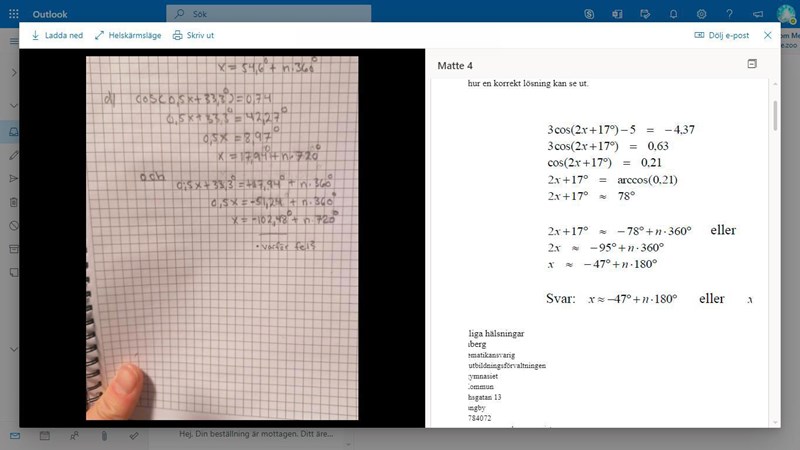 Outlook
Sök
Ladda ned
Helskärmsläge
Skriv ut
Dölj e-post
x = 54,6° + n·360°
d) cos(0,5x+33,3°)=0,74
0,5x+33,3° = 42,27°
0,5x = 8,97°
x = 17,94° + n·720°
och
0,5x+33,3° = -17,94° + n·360°
0,5x = -51,24° + n·360°
x = -102,48° + n·720°
• varför fel?
Matte 4
hur en korrekt lösning kan se ut.
3cos(2x+17°)−5 = −4,37
3cos(2x+17°) = 0,63
cos(2x+17°) = 0,21
2x+17° = arccos(0,21)
2x+17° ≈ 78°
2x+17° ≈ −78°+n·360° eller
2x ≈ −95°+n·360°
x ≈ −47°+n·180°
Svar: x≈−47°+n·180° eller x
liga hälsningar
berg
ematikansvarig
utbildningsförvaltningen
ymnasiet
kommun
hsgatan 13
ngby
784072
Hej. Din beställning är mottagen. Ditt äre...